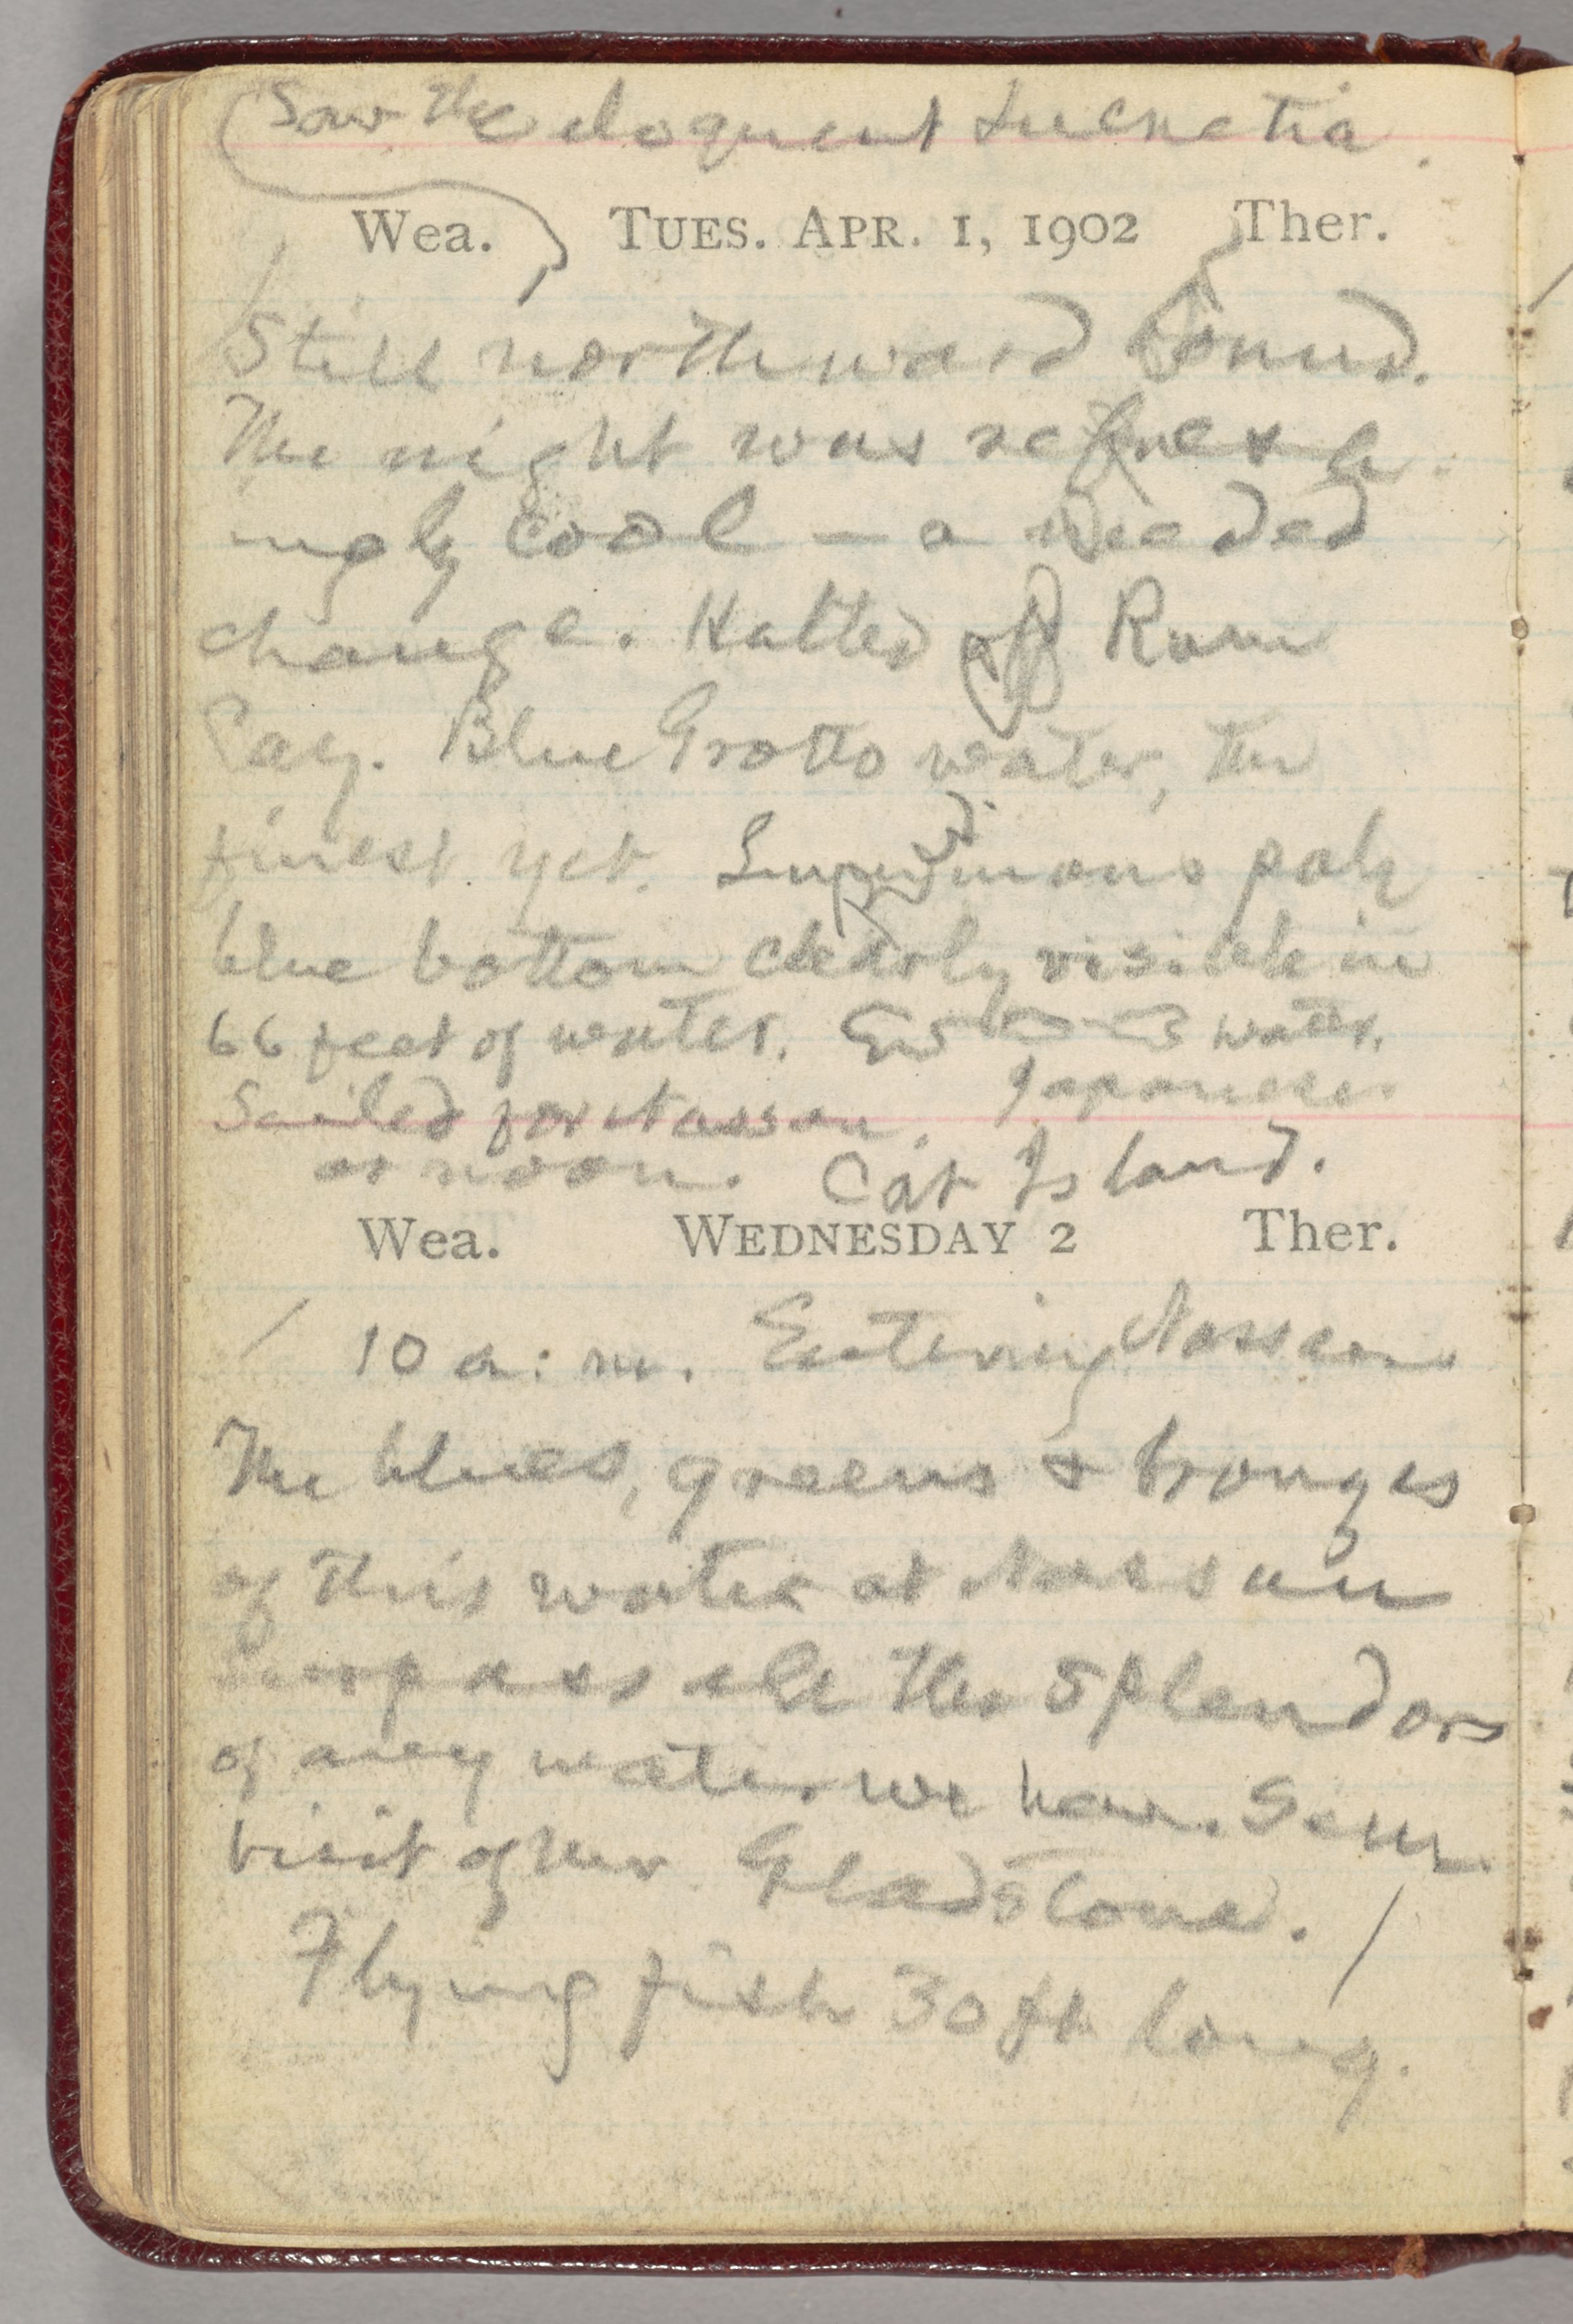 Saw the eloquent Lucretia.
Wea. TUES. APR. 1, 1902 Ther.
Still northward bound.
The night was refresh-
ingly cool — a needed
change. Halted off Rum
Cay. Blue Grotto water, the
finest yet. Luminous pale
blue bottom clearly visible in
66 feet of water. water.
Japanese.
Sailed for Nassau.
at noon. Cat Island.
Wea. WEDNESDAY 2 Ther.
10 a:m. Entering Nassau
The blues, greens & bronzes
of this water at Nassau
surpass all the splendors
of any water we have seen.
Visit of Mr Gladstone.
Flying fish 30 ft long.